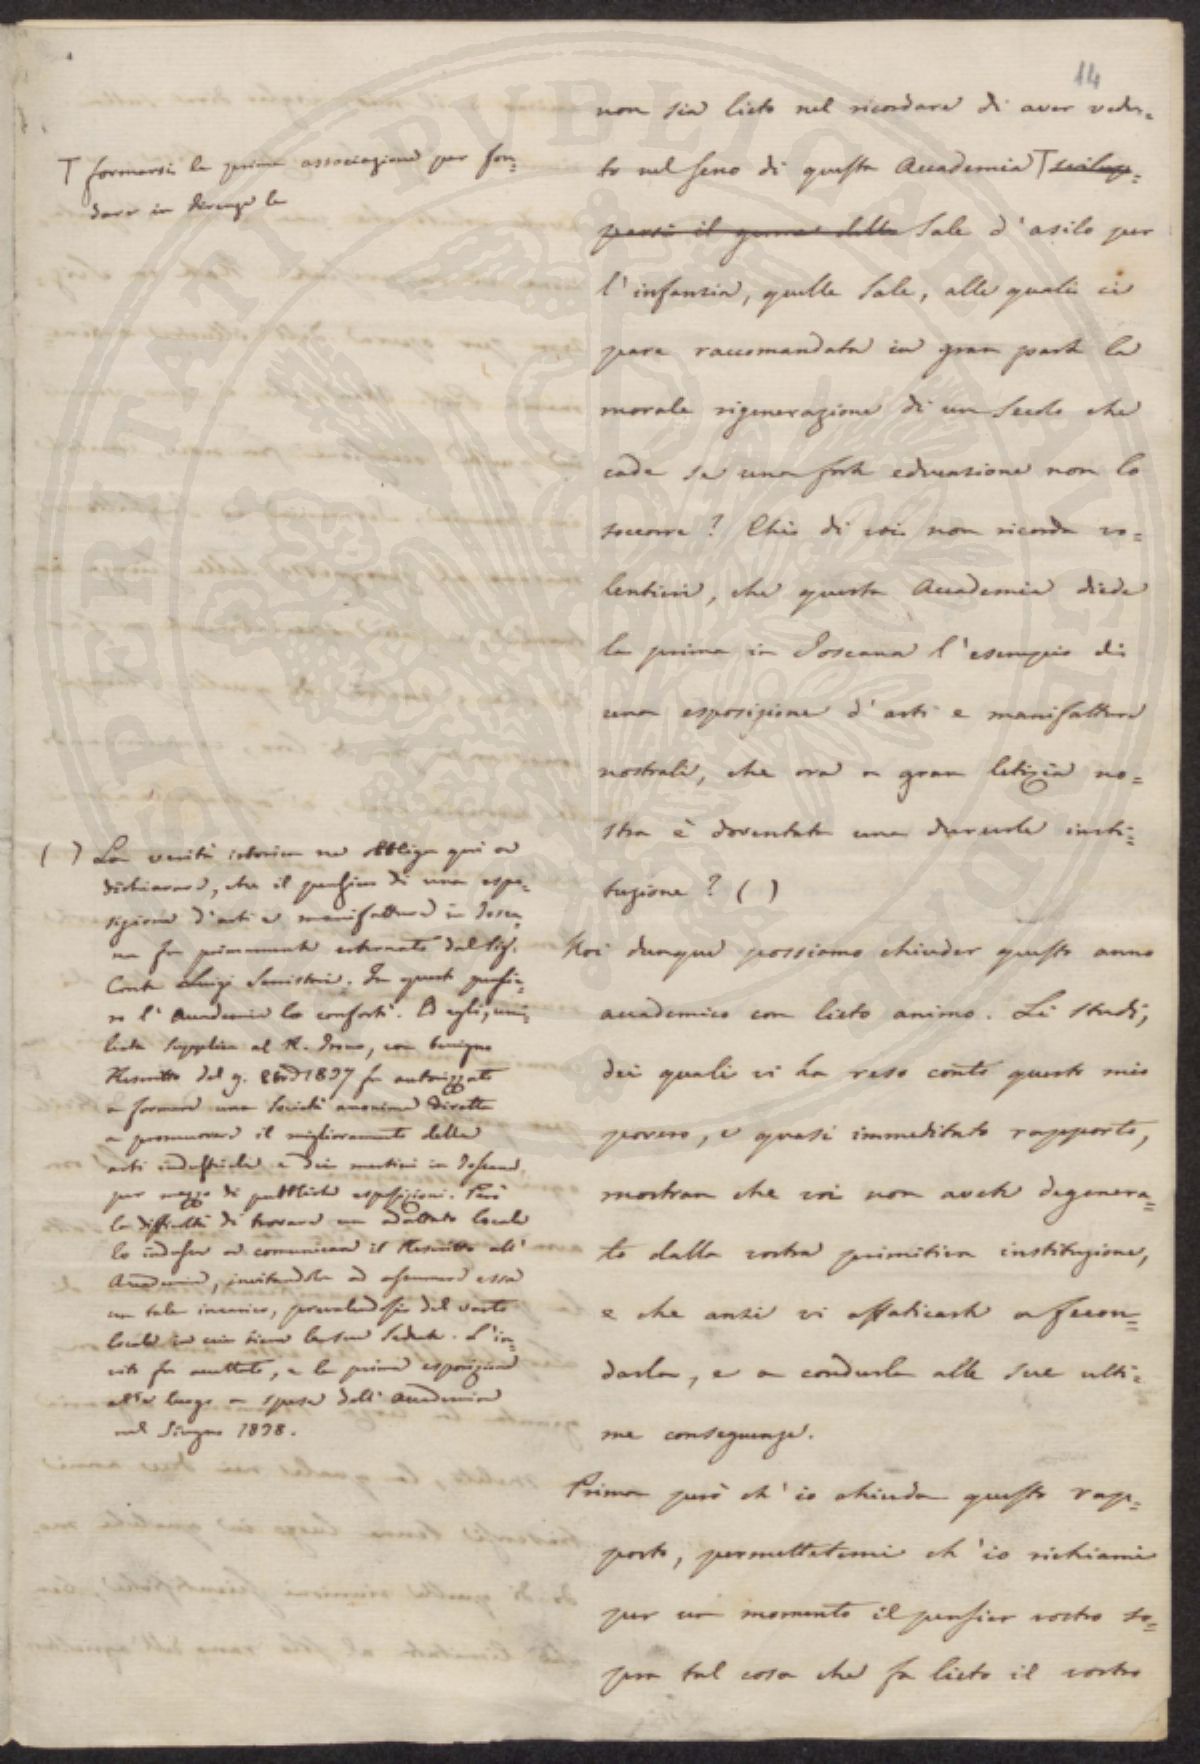 14
non sia lieto nel ricordare di aver vedu=
to nel seno di questa Accademia T svilup=
parsi il germe delle Sale d'asilo per
l'infanzia, quelle Sale, alle quali ci
pare raccomandata in gran parte la
morale rigenerazione di un Secolo che
cade se una forte educazione non lo
soccorre? Chi di voi non ricorda vo=
lentieri, che questa Accademia diede
la prima in Toscana l'esempio di
una esposizione d'arti e manifatture
nostrali, che ora a gran letizia no=
stra è doventata una durevole insti=
tuzione? ( )
Noi dunque possiamo chiuder questo anno
accademico con lieto animo. Li studi,
dei quali vi ha reso conto questo mio
povero, e quasi immeditato rapporto,
mostran che voi non avete degenera=
to dalla vostra primitiva instituzione,
e che anzi vi affaticaste a fecon=
darla, e a condurla alle sue ulti=
me conseguenze.
Prima però ch'io chiuda questo rap=
porto, permettetemi ch'io richiami
per un momento il pensier vostro so=
pra tal cosa che fa lieto il vostro
T formarsi la prima associazione per fon=
dare in Firenze le
( ) La verità istorica ne obbliga qui a
dichiarare, che il pensiero di una espo=
sizione d'arti e manifatture in Tosca=
na fu primamente esternato dal Sig.
Conte Luigi Serristori. In questo pensie=
ro l'Accademia lo confortò. Ed egli, umi=
liata supplica al R. Trono, con benigno
Rescritto del 9. 1837 fu autorizzato
a formare una Società anonima diretta
a promuovere il miglioramento delle
arti industriali e dei mestieri in Toscana,
per mezzo di pubbliche esposizioni. Però
la difficoltà di trovare un adattato locale
lo indusse a comunicare il Rescritto all'
Accademia, invitandola ad assumere essa
un tale incarico, prevalendosi del vasto
locale in cui tiene le sue Sedute. L'in=
vito fu accettato, e la prima esposizione
ebbe luogo a spese dell'Accademia
nel Giugno 1838.